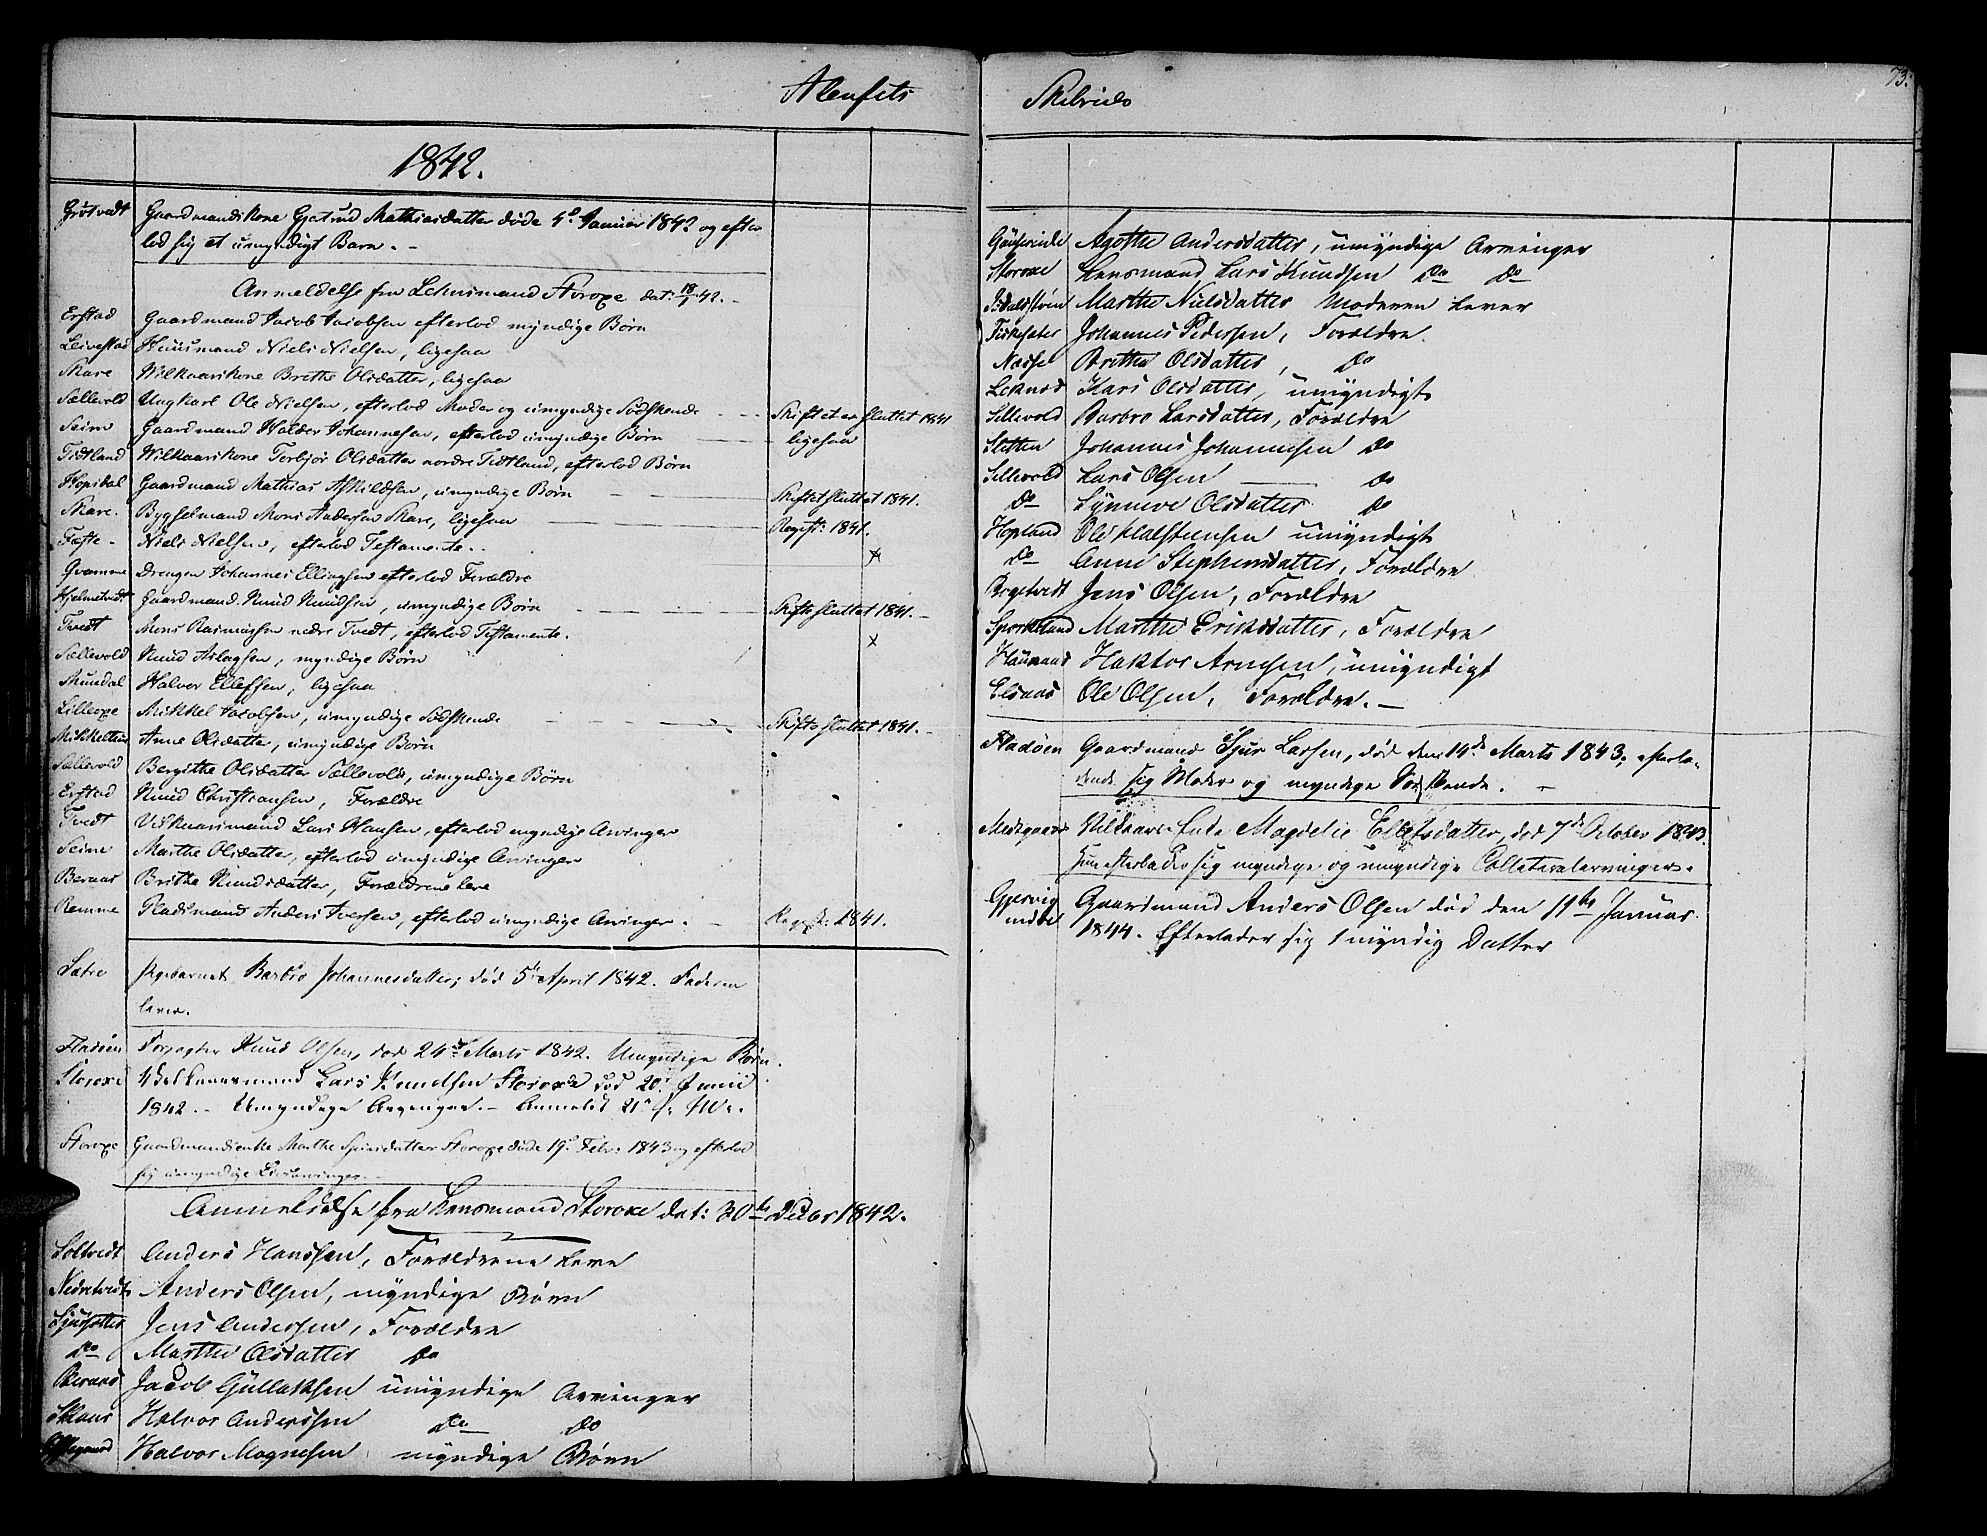 Alenfits
1842.
Grøtvedt Gaardmandskone Gjertrud Mathiasdatter døde 4d Januar 1842 og efter
lod sig et umyndigt Barn. -
Anmeldelse fra Lehnsmand Storoxe dat: 18/1 42. -
Erstad Gaardmand Jacob Jacobsen efterlod myndige Børn
Leivestad Huusmand Niels Nielsen, ligesaa
Skare Wilkaarskone Brethe Olsdatter, ligesaa
Sællevold Ungkarl Ole Nielsen, efterlod Moder og umyndige Södskende - - Skiftet er sluttet 1841
Seim Gaardmand Halder Johannesen, efterlod umyndige Børn - ligesaa
Tidtland Wilkaarskone Torbjør Olsdatter nordre Tidtland, efterlod Börn
Hopsdal Gaardmand Mathias Askildsen, umyndige Börn - - Skiftet sluttet 1841.
Skare. Bygselmand Mons Andersen Skare, ligesaa - Regist: 1841.
Tæfte - Niels Nielsen, efterlod Testamente. . x
Qvamme Drengen Johannes Ellingsen efterlod Forældre
Hjelmtvedt Gaardmand Knud Knudsen, umyndige Börn - - Skifte sluttet 1841. -
Tvedt Mons Rasmussen nedre Tvedt, efterlod Testamente. x
Sællevold Knud Aslagsen, myndige Börn
Mundal Halvor Ellefsen, ligesaa
Lilleoxe Mikkel Jacobsen, umyndige Södskende - - Skifte sluttet 1841. -
Anne Olsdatter, umyndige Börn
Sællevold Bergithe Olsdatter Sællevold, umyndige Börn
Erstad Knud Christiansen, Forældre
Tvedt Vilkaarsmand Lars Hansen, efterlod myndige Arvinger
Seime Marthe Olsdatter, efterlod umyndige Arvinger
Beraas Brithe Knudsdatter, Forældrene leve
Remme Pladsmand Anders Iversen, efterlod umyndige Arvinger. - Regist: 1841.
Sætre Pigebarnet Barbro Johannesdatter, død 5te April 1842. Faderen
lever.
Fladøen Forpagter Knud Olsen, død 24de Marts 1842. Umyndige Børn.
Storoxe Vilkaarsmand Lars Knudsen Storoxe død 20de Junii
1842. - Umyndige Arvinger. - Anmeldt 21de s. M..
Storoxe Gaardmandsenke Marthe Sjursdatter Storoxe døde 19d Febr: 1843 og efterlod
sig umyndige Livsarvinger
Anmeldelse fra Lensmand Storoxe dat: 30te Decbr 1842.
Soltvedt Anders Hanssen, Forældrene Leve
Nedretvedt Anders Olsen, myndige Børn
Jens Andersen, Forældre
Do Marthe Olsdatter Do
Beraas Jacob Gullaksen umyndige Arvinger
Halvor Anderssen Do Do
Halvor Magnesen myndige Børn
Skibrede
73.
Agathe Andersdatter, umyndige Arvinger
Storoxe Lensmand Lars Knudsen Do Do
Marthe Nielsdatter Moderen Lever
Johannes Pedersen, Forældre.
Brithe Olsdatter, Do
Leknes Kari Olsdatter, umyndigt
Sellevold Barbro Larsdatter, Forældre
Sletten Johannes Johannesen Do
Sellevold Lars Olsen Do
Do Synneve Olsdatter Do
Hopland Ole umyndigt
Do Anne Stephensdatter, Forældre
Jens Olsen, Forældre
Marthe Eriksdatter, Forældre
Haktor Arnesen, umyndigt
Elsaas Ole Olsen, Forældre. -
Fladöen Gaardmand Sjur Larsen, død den 14de Marts 1843, efterla-
dende sig Moder og myndige Södskende. -
Vilkaars Enke Magdeli Ellefsdatter, død 7de October 1843.
Hun efterlader sig myndige og umyndige Collateralarvinger.
Gjervig Gaardmand Anders Olsen død den 11te Januar
1844. Efterlader sig 1 myndig Datter